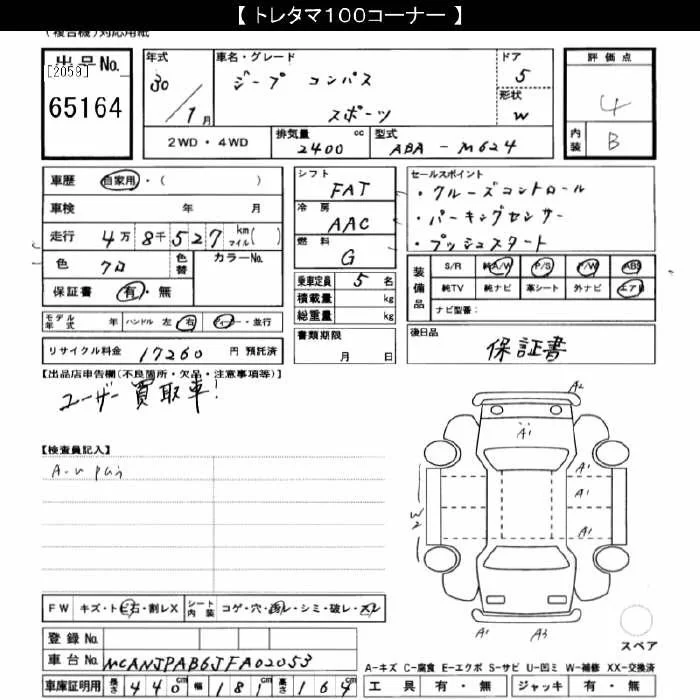 【 トレタマ１００コーナー 】
(複合機)対応用紙
出品No. [2059] 65164
年式 30／1月
車名・グレード ジープ コンパス スポーツ
ドア 5
形状 W
評価点 4
内装 B
2WD ・ 4WD
排気量 2400 cc
型式 ABA - M624
車歴 自家用・( )
車検 年 月
走行 4万8千527 km マイル( )
色 クロ 色替 カラーNo.
保証書 有・無
モデル年式 年 ハンドル 左・右 ディーラー・並行
リサイクル料金 17260 円 預託済
シフト FAT
冷房 AAC
燃料 G
乗車定員 5 名
積載量 kg
総重量 kg
書類期限 月 日
セールスポイント
・クルーズコントロール
・パーキングセンサー
・プッシュスタート
装備品 S/R 純A/W P/S P/W ABS
純TV 純ナビ 革シート 外ナビ エアB
ナビ型番:
後日品 保証書
【出品店申告欄(不良箇所・欠品・注意事項等)】
ユーザー買取車!
【検査員記入】
A-U
A2
A1
A1
A1
A1
W2
A1 A3
スペア
FW キズ・トビ石・割レX シート内装 コゲ・穴・擦レ・シミ・破レ・スレ
登録No.
車台No. MCANJPAB6JFA02053
A-キズ C-腐食 E-エクボ S-サビ U-凹ミ W-補修 XX-交換済
車庫証明用 長さ 440cm 幅 181cm 高さ 164cm 工具 有・無 ジャッキ 有・無